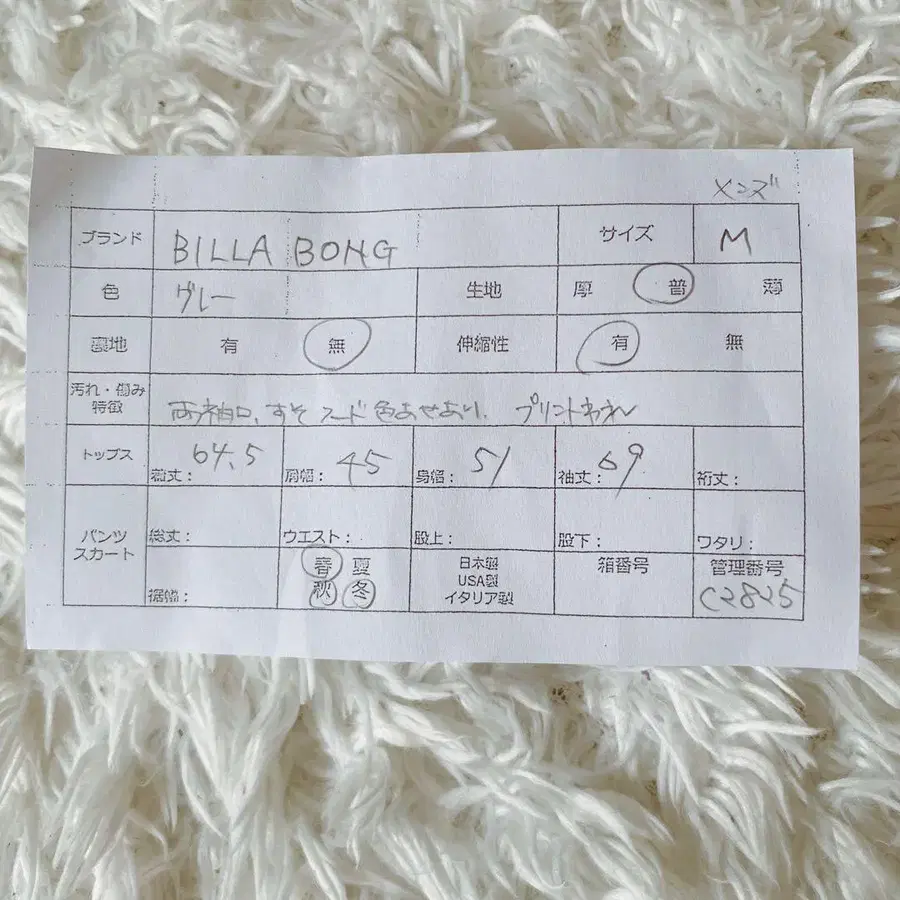 メンズ
ブランド BILLA BONG サイズ M
色 グレー 生地 厚 普 薄
裏地 有 無 伸縮性 有 無
汚れ・傷み
特徴 両袖口、すそ フード 色あせあり、プリントわれ
トップス 着丈: 64.5 肩幅: 45 身幅: 51 袖丈: 69 裄丈:
パンツ
スカート
総丈: ウエスト: 股上: 股下: ワタリ:
裾幅:
春 夏
秋 冬
日本製
USA製
イタリア製
箱番号
管理番号
C2825